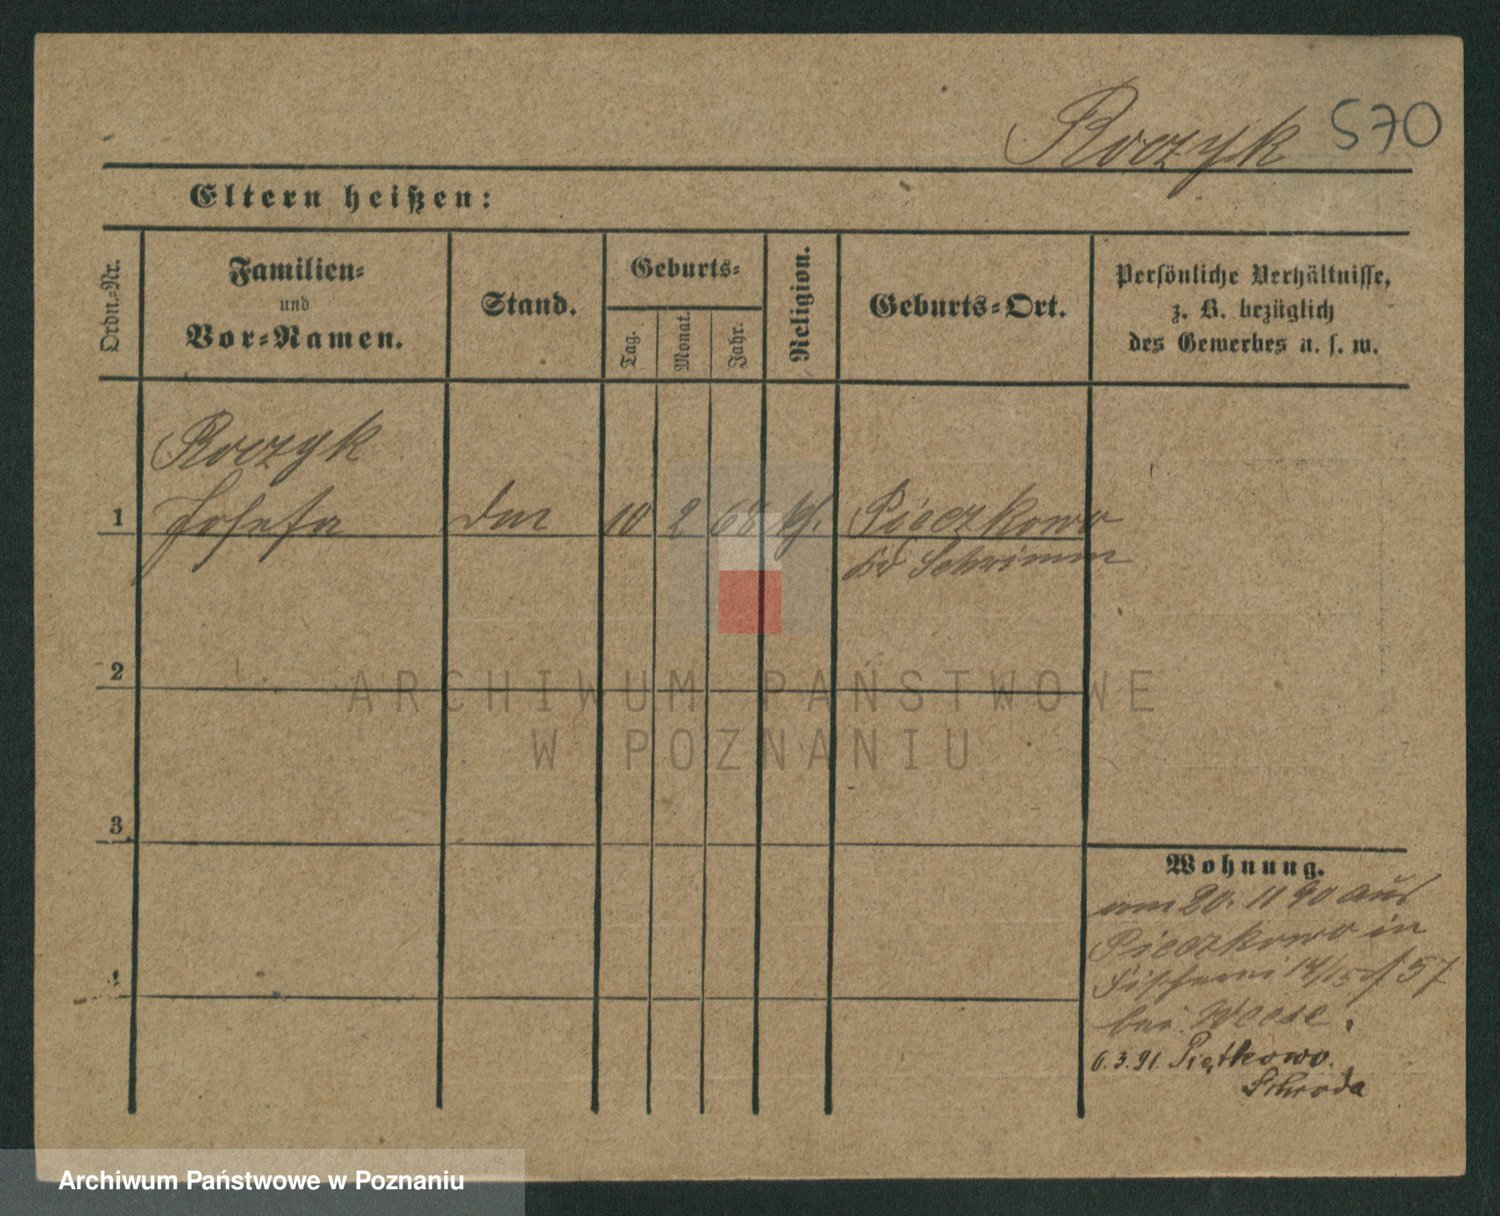 Roczyk 570
Eltern heißen:
Ordn.-Nr.
Familien-
und
Vor-Namen.
Stand.
Geburts-
Tag.
Monat.
Jahr.
Religion.
Geburts-Ort.
Persönliche Verhältnisse,
z. B. bezüglich
des Gewerbes u. s. w.
Roczyk
1 Josefa 10 2 68 Pieczkowo
Schrimm
2
3
4
Wohnung.
am 20. 11 90 aus
Pieczkowo in
Fischerei 14/15 57
bei Weese.
6.3.91 Piątkowo.
Schroda
ARCHIWUM PAŃSTWOWE
W POZNANIU
Archiwum Państwowe w Poznaniu